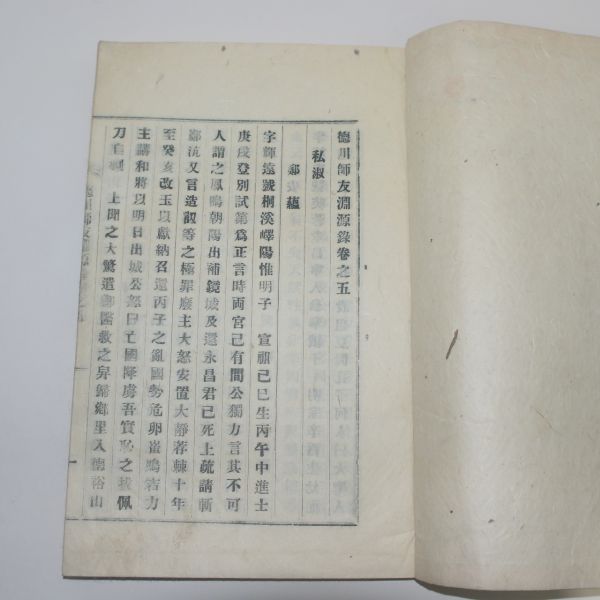 德川師友淵源錄卷之五
私淑
鄭安蘊
字輝遠號桐溪嶧陽惟明子 宣祖己巳生丙午中進士
庚戌登別試第爲正言時両宮已有間公獨力言其不可
人謂之鳳鳴朝陽出補鏡城及還永昌君已死上疏請斬
鄭沆又言造訒等之極罪廢主大怒安置大靜荐棘十年
至癸亥改玉以獻納召還丙子之亂國勢危卵崔鳴吉力
主講和將以明日出城公怒曰亡國降虜吾實恥之拔佩
刀自刺 上聞之大驚遣御醫救之舁歸鄉里入德裕山